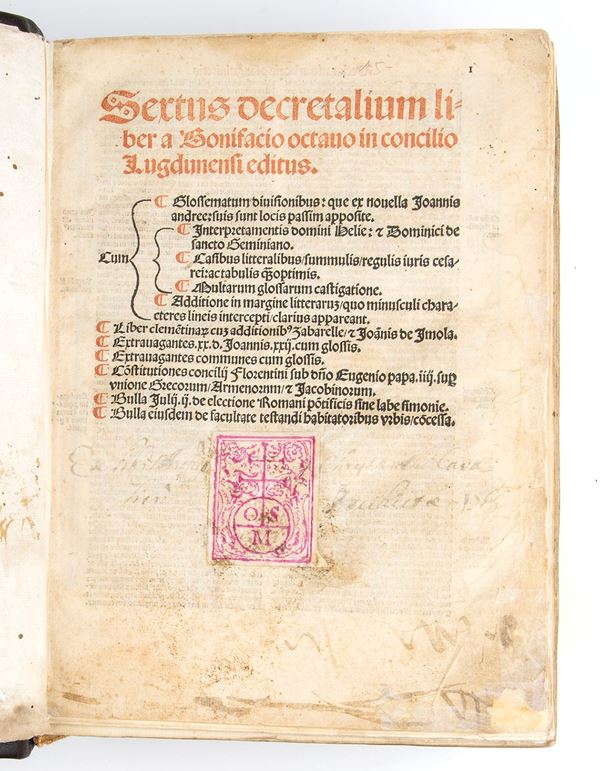 1
Sextus decretalium li-
ber a Bonifacio octauo in concilio
Lugdunensi editus.
Cum
¶ Glossematum diuisionibus: que ex nouella Joannis
andree: suis sunt locis passim apposite.
¶ Interpretamentis domini Helie: ⁊ Dominici de
sancto Geminiano.
¶ Casibus litteralibus/summulis/regulis iuris cesa-
rei: ac tabulis q̃optimis.
¶ Multarum glossarum castigatione.
¶ Additione in margine litteraruꝫ/quo minusculi chara-
cteres lineis intercepti/clarius appareant.
¶ Liber clemẽtinaꝝ cuꝫ additionibꝰ Zabarelle/⁊ Joãnis de Imola.
¶ Extrauagantes.xx.d.Joannis.xxij.cum glossis.
¶ Extrauagantes communes cum glossis.
¶ Cõstitutiones concilij Florentini sub dño Eugenio papa.iiij.suꝑ
vnione Grecorum/Armenorum/⁊ Jacobinorum.
¶ Bulla Julij.ij.de electione Romani põtificis sine labe simonie.
¶ Bulla eiusdem de facultate testandi habitatoribus vrbis/cõcessa.
O S
M